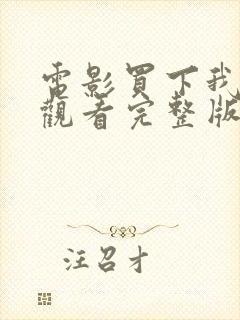 電影買下我
觀看完整版
汪召才